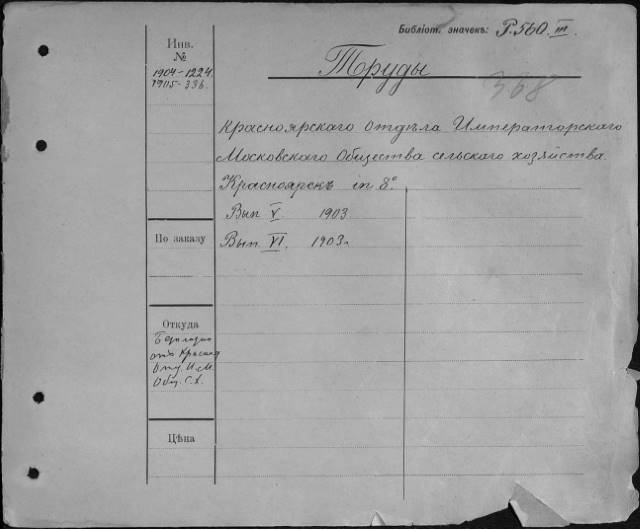 Библіот. значекъ: Р.560. III.
Инв.
№
1904-1224.
1905-336.
Труды
368
Красноярскаго отдѣла Императорскаго
Московскаго Общества сельскаго хозяйства.
Красноярскъ in 8°
Вып V. 1903
По заказу
Вып. VI. 1903г
Откуда
отъ Красноя
Отд. И.М.
Общ. С.Х.
Цѣна